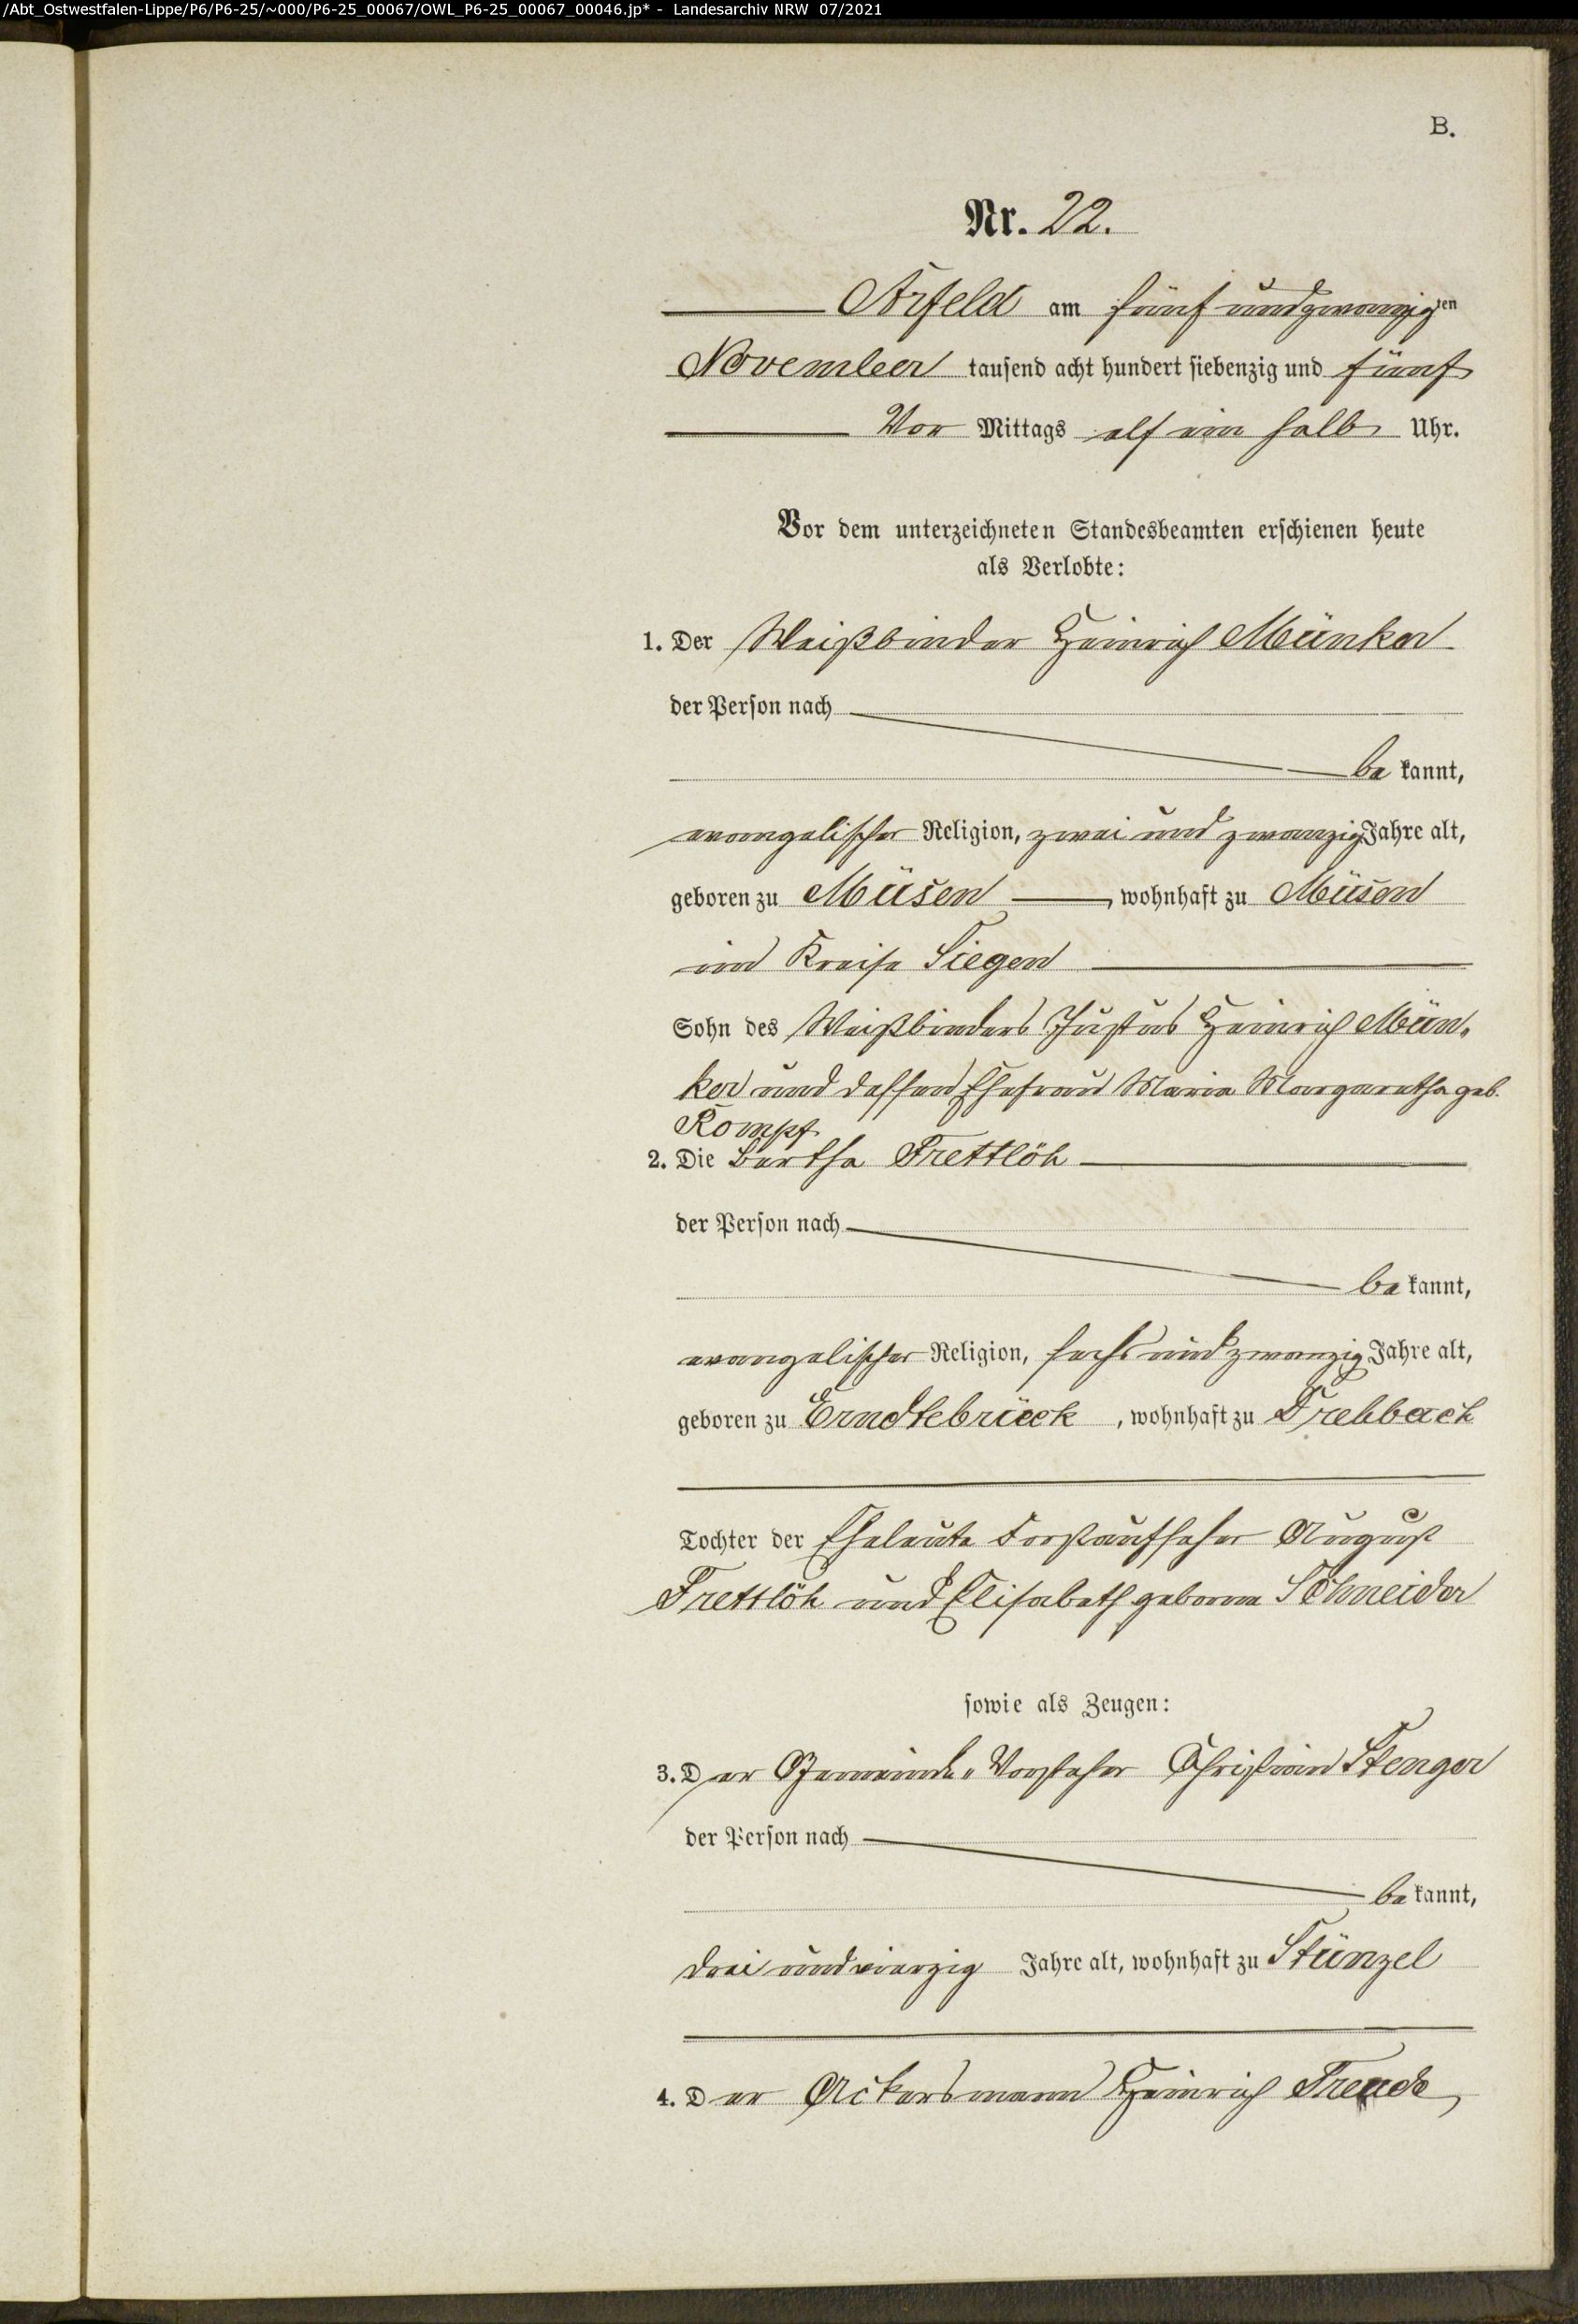 /Abt_Ostwestfalen-Lippe/P6/P6-25/~000/P6-25_00067/OWL_P6-25_00067_00046.jp* - Landesarchiv NRW 07/2021
B.
Nr. 22.
Arfeld am fünf und zwanzigten
November tausend acht hundert siebenzig und fünf
Vor Mittags elf ein halb Uhr.
Vor dem unterzeichneten Standesbeamten erschienen heute
als Verlobte:
1. Der Weißbinder Heinrich Münker
der Person nach
be kannt,
evangelischer Religion, zwei und zwanzig Jahre alt,
geboren zu Müsen, wohnhaft zu Müsen
im Kreise Siegen
Sohn des Weißbinders Justus Heinrich Mün-
ker und dessen Ehefrau Maria Margaretha geb.
Rompf
2. Die Bertha Frettlöh
der Person nach
be kannt,
evangelischer Religion, sechs und zwanzig Jahre alt,
geboren zu Erndtebrück, wohnhaft zu
Tochter der Eheleute Forstaufseher August
Frettlöh und Elisabeth geborene Schneider
sowie als Zeugen:
3. Der Gemeinde-Vorsteher Christian Stenger
der Person nach
be kannt,
drei und vierzig Jahre alt, wohnhaft zu Stünzel
4. Der Ackersmann Heinrich Treude,